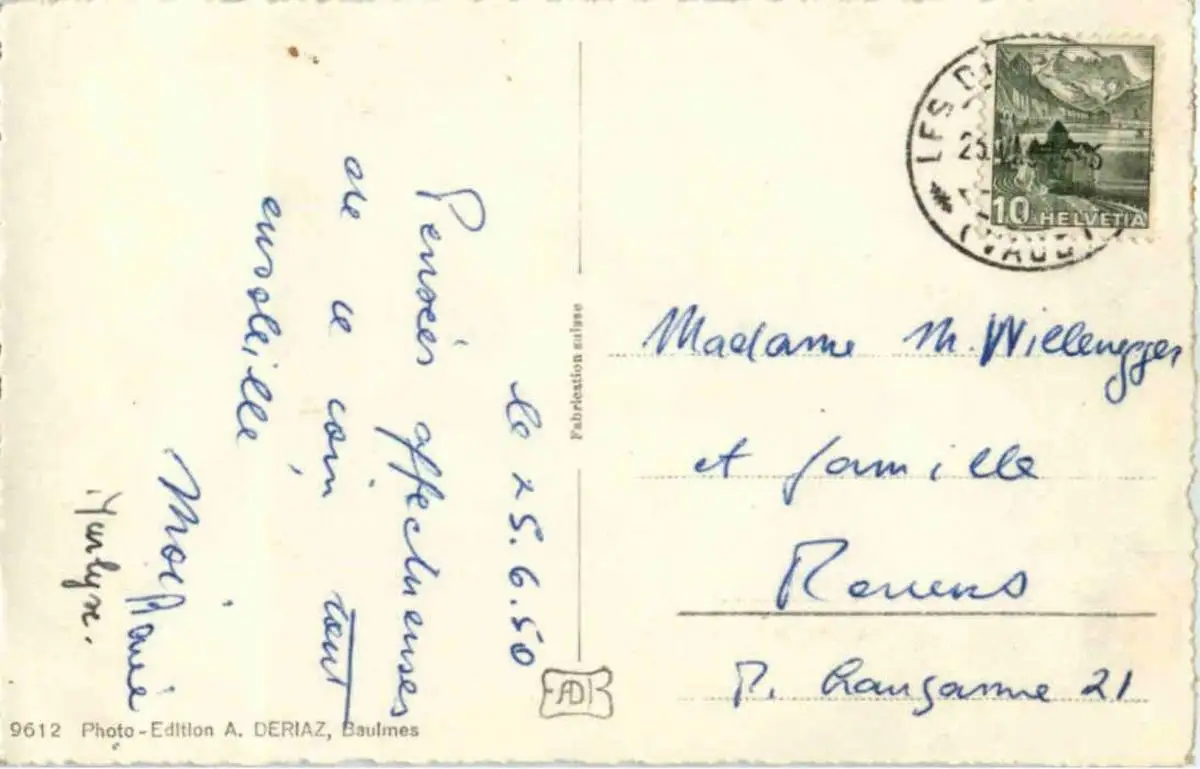 le 25.6.50
Pensées affectueuses
de ce coin tout
ensoleillé
Marlyse.
Fabrication suisse
AD
9612 Photo-Edition A. DERIAZ, Baulmes
LES
(VAUD)
10 HELVETIA
Madame M. Willenegger
et famille
Renens
R. Lausanne 21